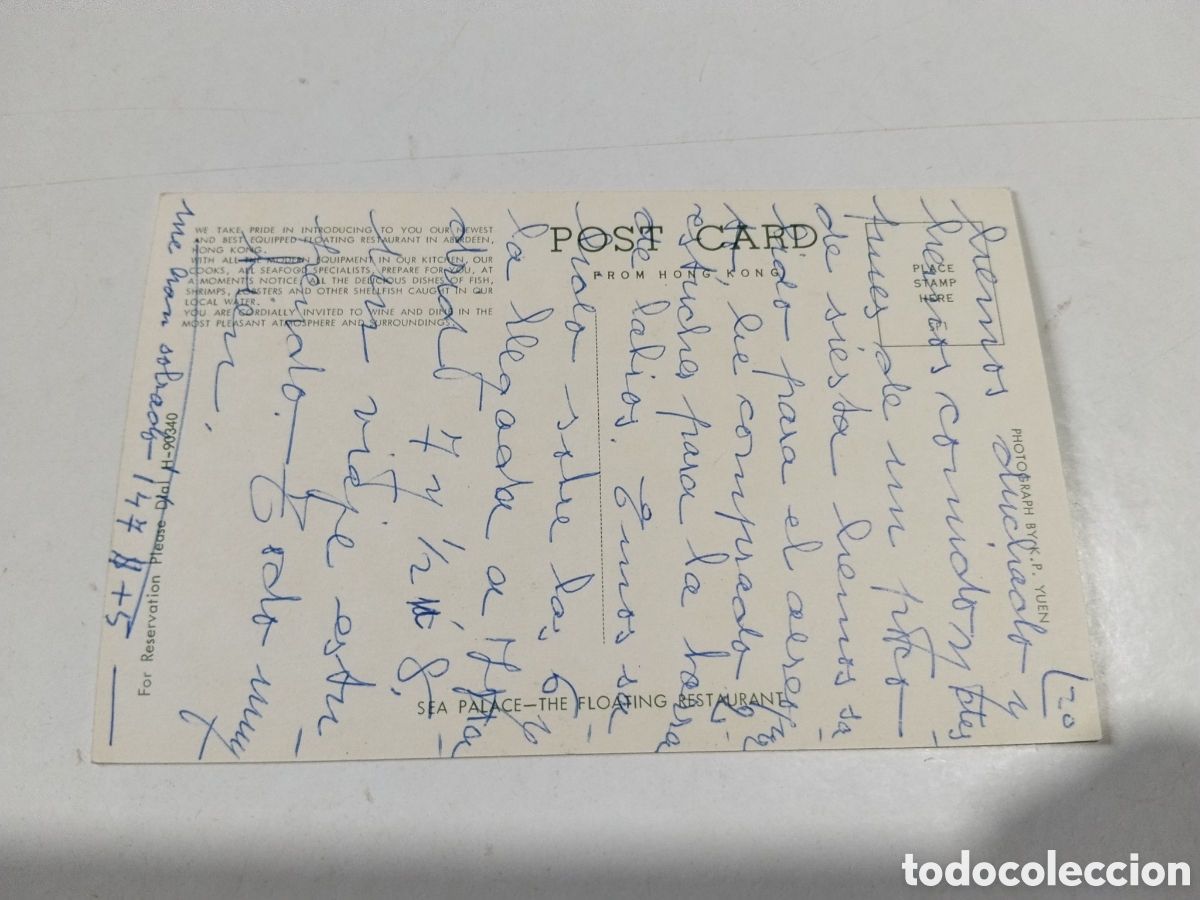 WE TAKE PRIDE IN INTRODUCING TO YOU OUR NEWEST
AND BEST EQUIPPED FLOATING RESTAURANT IN ABERDEEN,
HONG KONG.
WITH ALL THE MODERN EQUIPMENT IN OUR KITCHEN, OUR
COOKS, ALL SEAFOOD SPECIALISTS, PREPARE FOR YOU, AT
A MOMENT'S NOTICE, ALL THE DELICIOUS DISHES OF FISH,
SHRIMPS, LOBSTERS AND OTHER SHELLFISH CAUGHT IN OUR
LOCAL WATER.
YOU ARE CORDIALLY INVITED TO WINE AND DINE IN THE
MOST PLEASANT ATMOSPHERE AND SURROUNDINGS.
For Reservation Please Dial H-90340
POST CARD
FROM HONG KONG
PLACE
STAMP
HERE
PHOTOGRAPH BY K.P. YUEN
SEA PALACE—THE FLOATING RESTAURANT
hemos duchado y
hemos comido
pues de un poco
de siesta hemos sa
lido para el aerop
he comprado
estuches para la barra
de labios.
lido sobre las 6 y
la llegada a
7 y 1/2 u 8.
viaje estu
pendo. Todo muy
bien.
me han sobrado 147